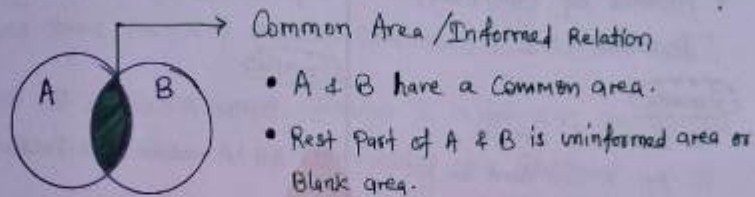 Common Area/Informed Relation
A B
• A & B have a Common area.
• Rest Part of A & B is uninformed area or
Blank area.